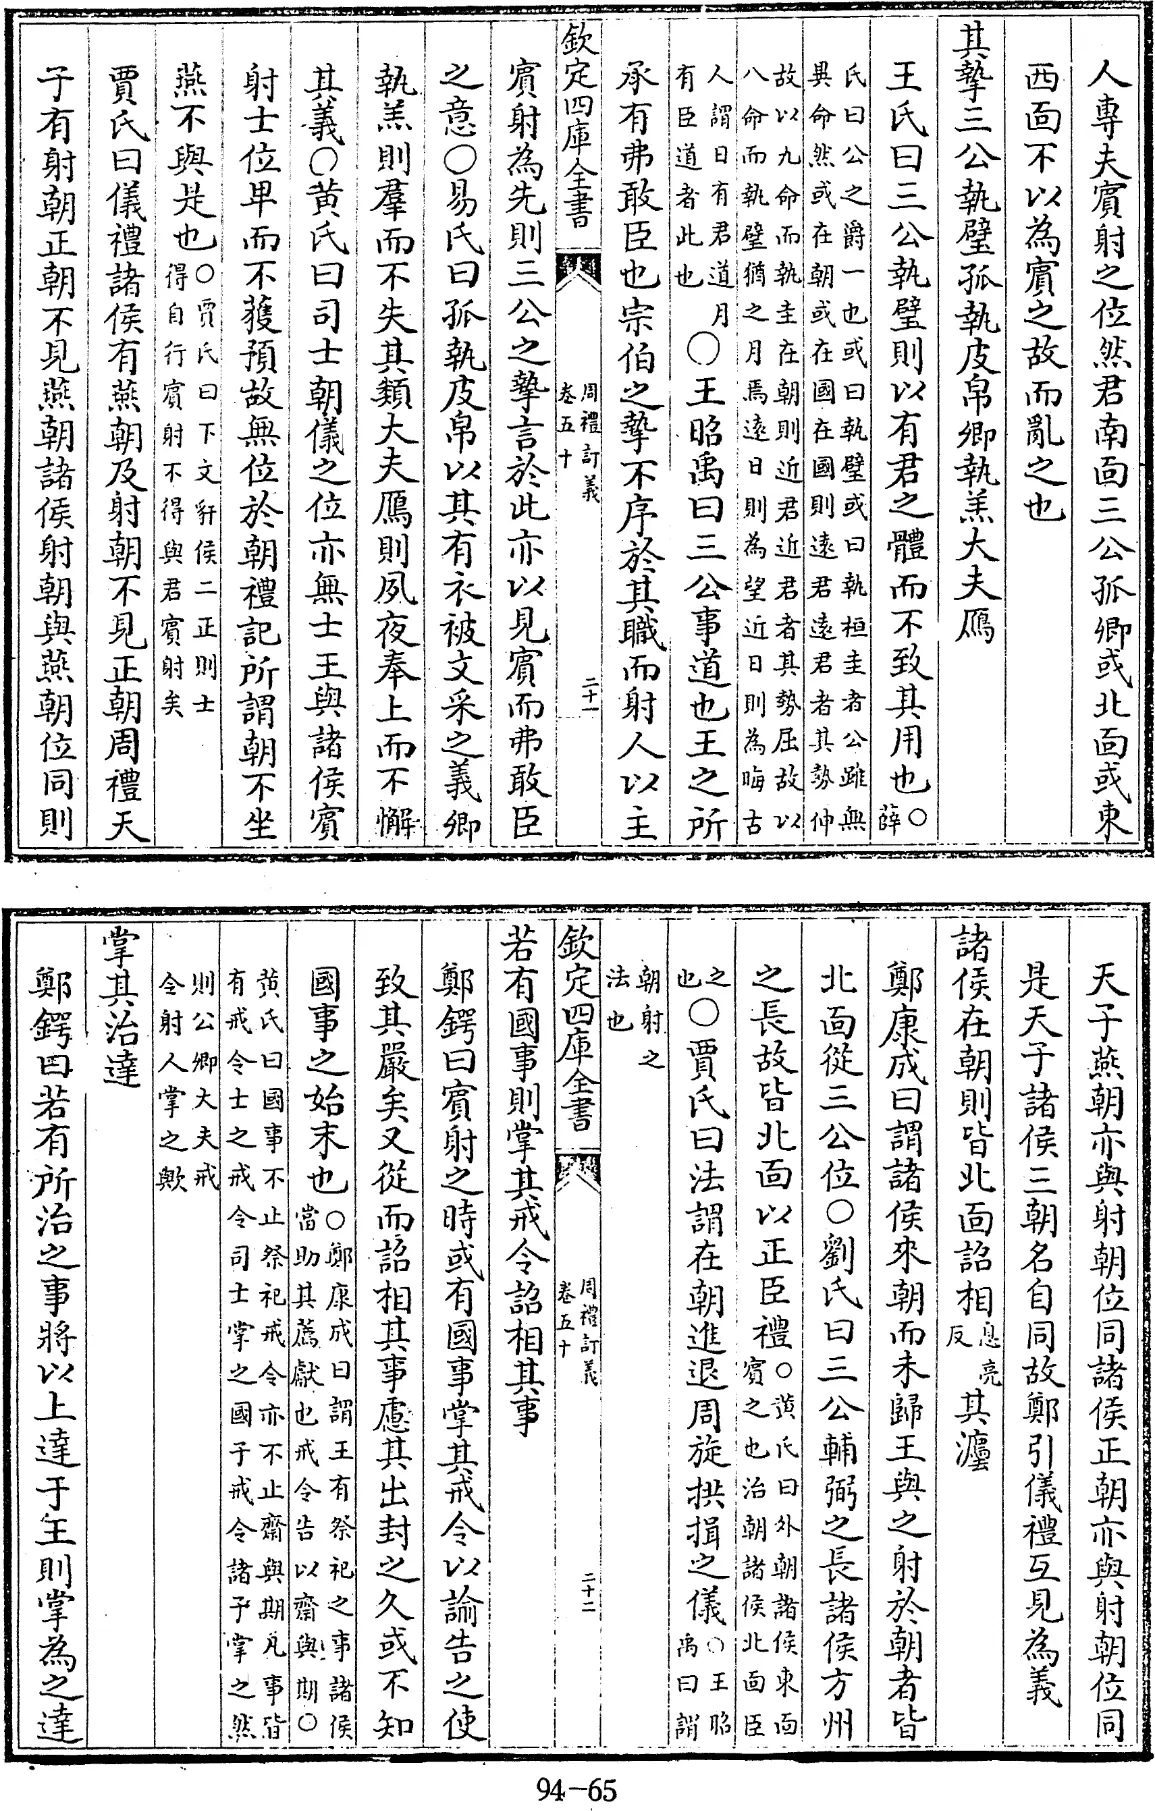 人專夫賓射之位然君南面三公孤卿或北面或東
西面不以為賓之故而亂之也
其摯三公執璧孤執皮帛卿執羔大夫鴈
王氏曰三公執璧則以有君之體而不致其用也○薛
氏曰公之爵一也或曰執璧或曰執桓圭者公雖無
異命然或在朝或在國在國則遠君遠君者其勢伸
故以九命而執圭在朝則近君近君者其勢屈故以
八命而執璧猶之月焉遠日則為望近日則為晦古
人謂日有君道月
有臣道者此也
○王昭禹曰三公事道也王之所
承有弗敢臣也宗伯之摯不序於其職而射人以主
欽定四庫全書
周禮訂義
卷五十
二十一
賓射為先則三公之摯言於此亦以見賓而弗敢臣
之意○易氏曰孤執皮帛以其有衣被文采之義卿
執羔則羣而不失其類大夫鴈則夙夜奉上而不懈
其義○黄氏曰司士朝儀之位亦無士王與諸侯賓
射士位卑而不獲預故無位於朝禮記所謂朝不坐
燕不與是也
○賈氏曰下文豻侯二正則士
得自行賓射不得與君賓射矣
賈氏曰儀禮諸侯有燕朝及射朝不見正朝周禮天
子有射朝正朝不見燕朝諸侯射朝與燕朝位同則
天子燕朝亦與射朝位同諸侯正朝亦與射朝位同
是天子諸侯三朝名自同故鄭引儀禮互見為義
諸侯在朝則皆北面詔相
息亮
反
其灋
鄭康成曰謂諸侯來朝而未歸王與之射於朝者皆
北面從三公位○劉氏曰三公輔弼之長諸侯方州
之長故皆北面以正臣禮
○黄氏曰外朝諸侯東面
賓之也治朝諸侯北面臣
之
也
○賈氏曰法謂在朝進退周旋拱揖之儀
○王昭
禹曰謂
朝射之
法也
欽定四庫全書
周禮訂義
卷五十
二十二
若有國事則掌其戒令詔相其事
鄭鍔曰賓射之時或有國事掌其戒令以諭告之使
致其嚴矣又從而詔相其事慮其出封之久或不知
國事之始末也
○鄭康成曰謂王有祭祀之事諸侯
當助其薦獻也戒令告以齋與期○
黄氏曰國事不止祭祀戒令亦不止齋與期凡事皆
有戒令士之戒令司士掌之國子戒令諸子掌之然
則公卿大夫戒
令射人掌之歟
掌其治達
鄭鍔曰若有所治之事將以上達于王則掌為之達
94-65